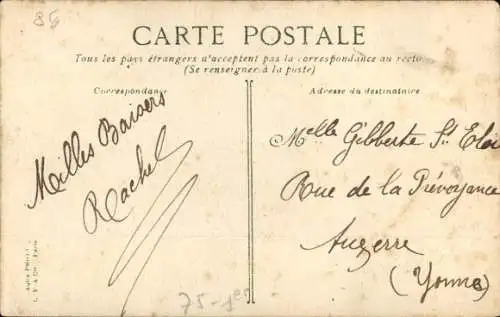 85
CARTE POSTALE
Tous les pays étrangers n'acceptent pas la correspondance au recto
(Se renseigner à la poste)
Correspondance
Milles Baisers
Rachel
Adresse du destinataire
Melle Gilberte St. Eloi
Rue de la Prévoyance
Auxerre
(Yonne)
75-